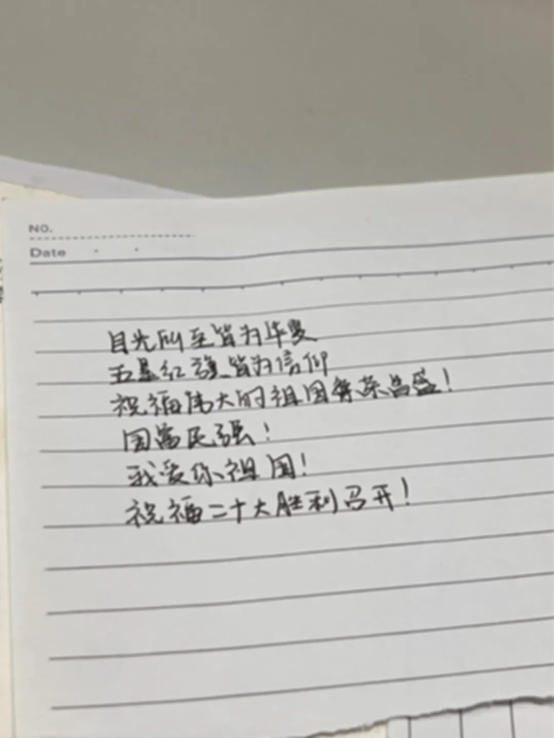 NO.
Date
目光所至皆为华夏
五星红旗皆为信仰
祝福伟大的祖国繁荣昌盛！
国富民强！
我爱你祖国！
祝福二十大胜利召开！